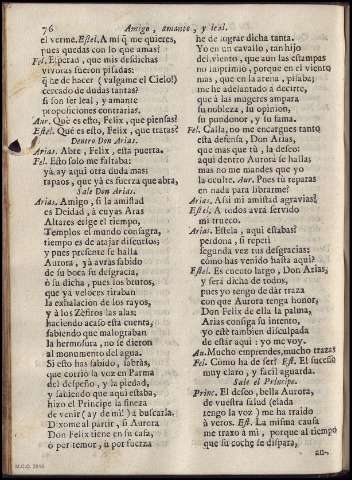 76 Amigo, amante, y leal.
el verme. Estel. A mi q̃ me quieres,
pues quedas con lo que amas?
Fel. Esperad, que mis desdichas
vivoras fueron pisadas:
q̃ he de hacer (valgame el Cielo!)
cercado de dudas tantas?
si son ser leal, y amante
proposiciones contrarias.
Aur. Qué es esto, Felix, que piensas?
Estel. Qué es esto, Felix, que tratas?
Dentro Don Arias.
Arias. Abre, Felix, esta puerta.
Fel. Esto solo me faltaba:
yá, ay aqui otra duda mas:
rapaos, que yá es fuerza que abra,
Sale Don Arias.
Arias. Amigo, si la amistad
es Deidad, à cuyas Aras
Altares erige el tiempo,
Templos el mundo consagra,
tiempo es de atajar discursos;
y pues presente se halla
Aurora, yá avràs sabido
de su boca su desgracia,
ò su dicha, pues los brutos,
que yá veloces tiraban
la exhalacion de los rayos,
y à los Zéfiros las alas;
haciendo acaso esta cuenta,
sabiendo que malograban
la hermosura, no se dieron
al monumento del agua.
Si esto has sabido, sabràs,
que corriò la voz en Parma
del despeño, y la piedad,
y sabiendo que aqui estaba,
hizo el Principe la fineza
de venir (ay de mi!) à buscarla.
Dixome al partir, si Aurora
Don Felix tiene en su casa,
ò por temor, à por fuerza
he de lograr dicha tanta.
Yo en un cavallo, tan hijo
del viento, que aun las estampas
no imprimiò, porque en el viento
mas, que en la arena, pisaba;
me he adelantado à decirte,
que à las mugeres ampara
su nobleza, su opinion,
su pundonor, y su fama.
Fel. Calla, no me encargues tanto
esta defensa, Don Arias,
que mas que tù, la deseo:
aqui dentro Aurora se halla;
mas no me mandes que yo
la oculte. Aur. Pues tù reparas
en nada para librarme?
Arias. Assi mi amistad agravias?
Estel. A todos avrà servido
mi trueco.
Arias. Estela, aqui estabas?
perdona, si repetì
segunda vez tus desgracias:
còmo has venido hasta aqui?
Estel. Es cuento largo, Don Arias,
y serà dicha de todos,
pues yo tengo de dàr traza
con que Aurora tenga honor,
Don Felix de ella la palma,
Arias consiga su intento,
yo esté tambien disculpada
de estár aqui: y no me voy.
Au. Mucho emprendes, mucho trazas
Fel. Còmo ha de ser? Est. El sucesso
muy claro, y facil aguarda.
Sale el Principe.
Princ. El deseo, bella Aurora,
de vuestra salud (elada
tengo la voz) me ha traido
à veros. Est. La misma causa
me traxo à mi, porque al tiempo
que su coche se dispara,
M.C.D. 2016